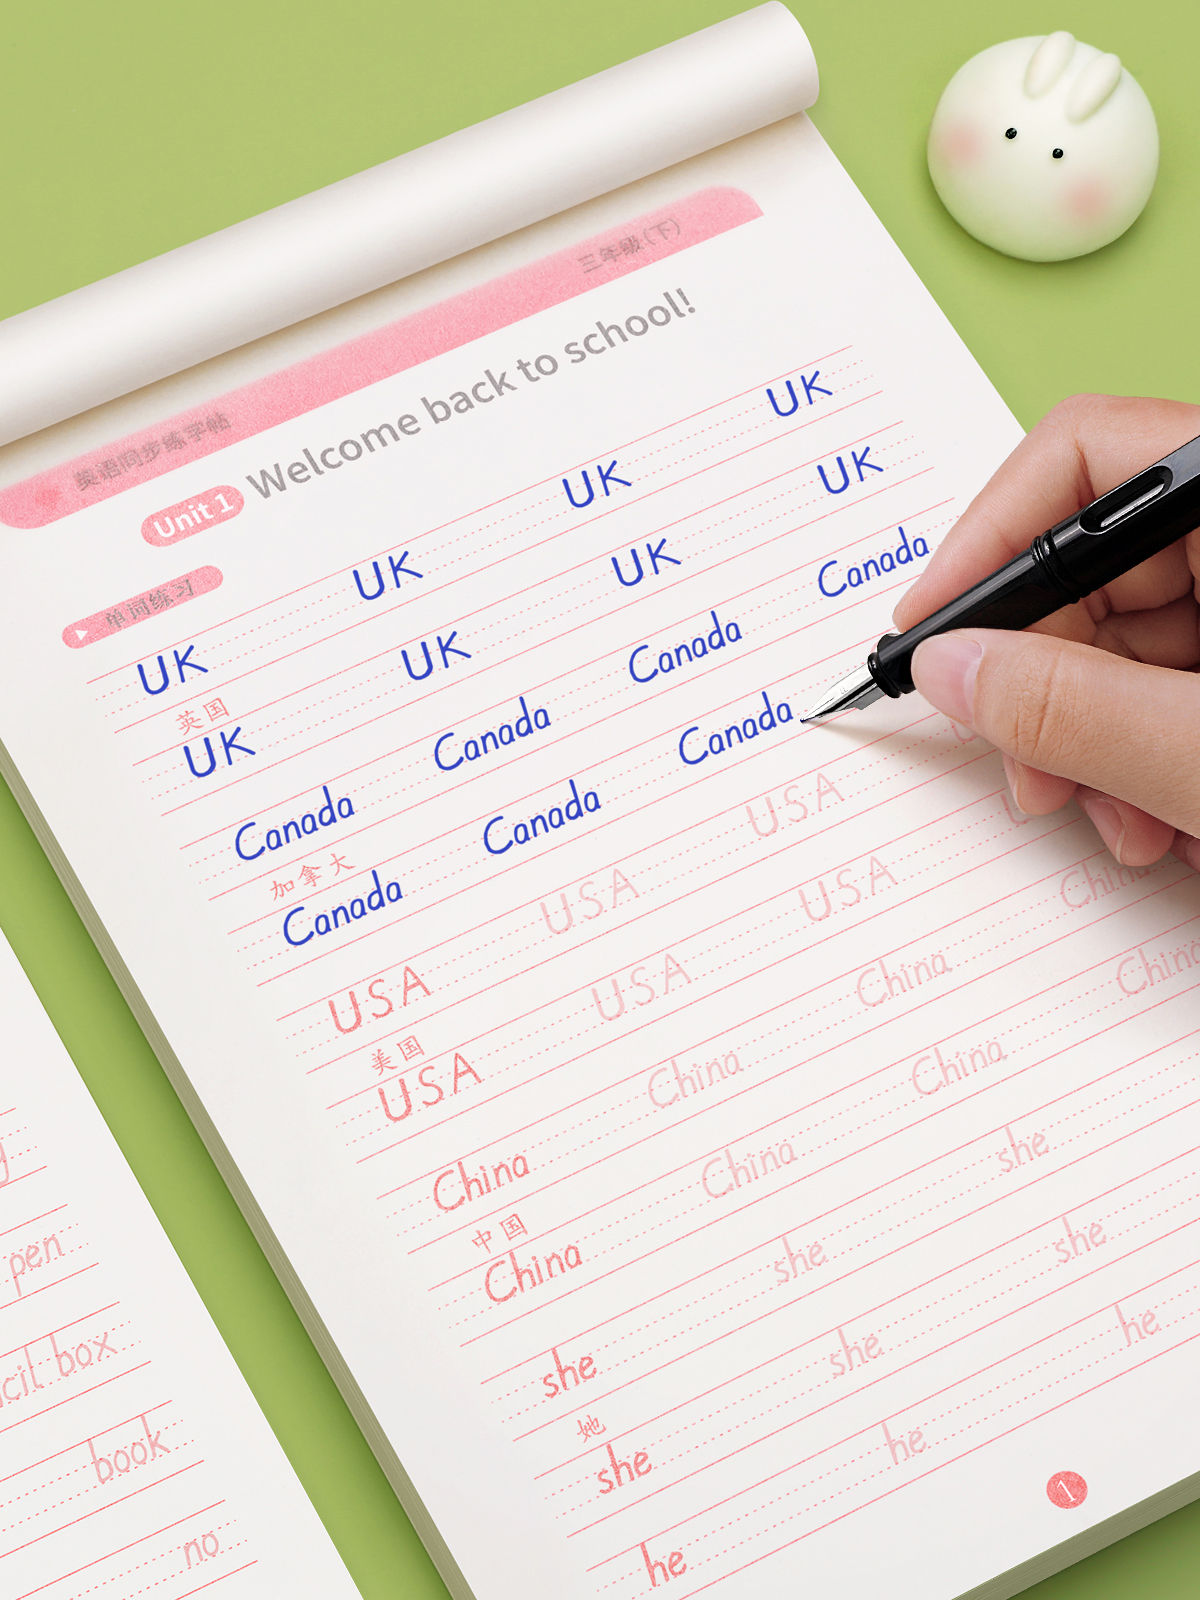 英语同步练字帖 三年级(下)
Unit 1 Welcome back to school!
单词练习
UK UK UK UK
英国
UK UK UK UK
Canada Canada Canada Canada
加拿大
Canada Canada Canada
USA USA USA
美国
USA USA USA
China China China China
中国
China China China China
she she she
她
she she she
he he he
1
pen
book
no